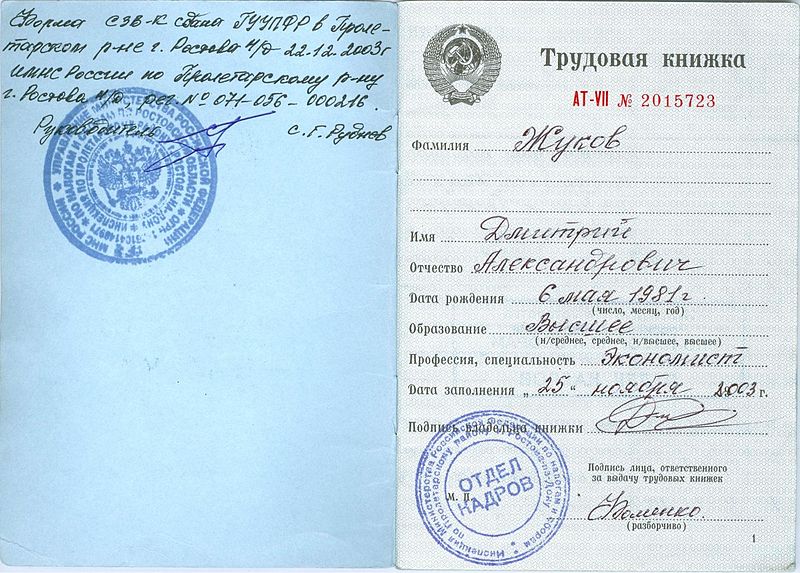 Форма СЗВ-К сдана ГУУПФР в Проле-
тарском р-не г. Ростова н/Д 22.12.2003г
ИМНС России по Пролетарскому р-ну
г. Ростова н/Д, рег. № 071-056-000216.
Руководитель С.Г. Руднев
Трудовая книжка
АТ-VII № 2015723
Фамилия Жуков
Имя Дмитрий
Отчество Александрович
Дата рождения 6 мая 1981г.
(число, месяц, год)
Образование Высшее
(н/среднее, среднее, н/высшее, высшее)
Профессия, специальность Экономист
Дата заполнения „25“ ноября 2003 г.
Подпись владельца книжки
ОТДЕЛ
КАДРОВ
Инспекция Министерства Российской Федерации по налогам и сборам
по Пролетарскому району г. Ростова-на-Дону
М. П.
Подпись лица, ответственного
за выдачу трудовых книжек
Фоменко.
(разборчиво)
1